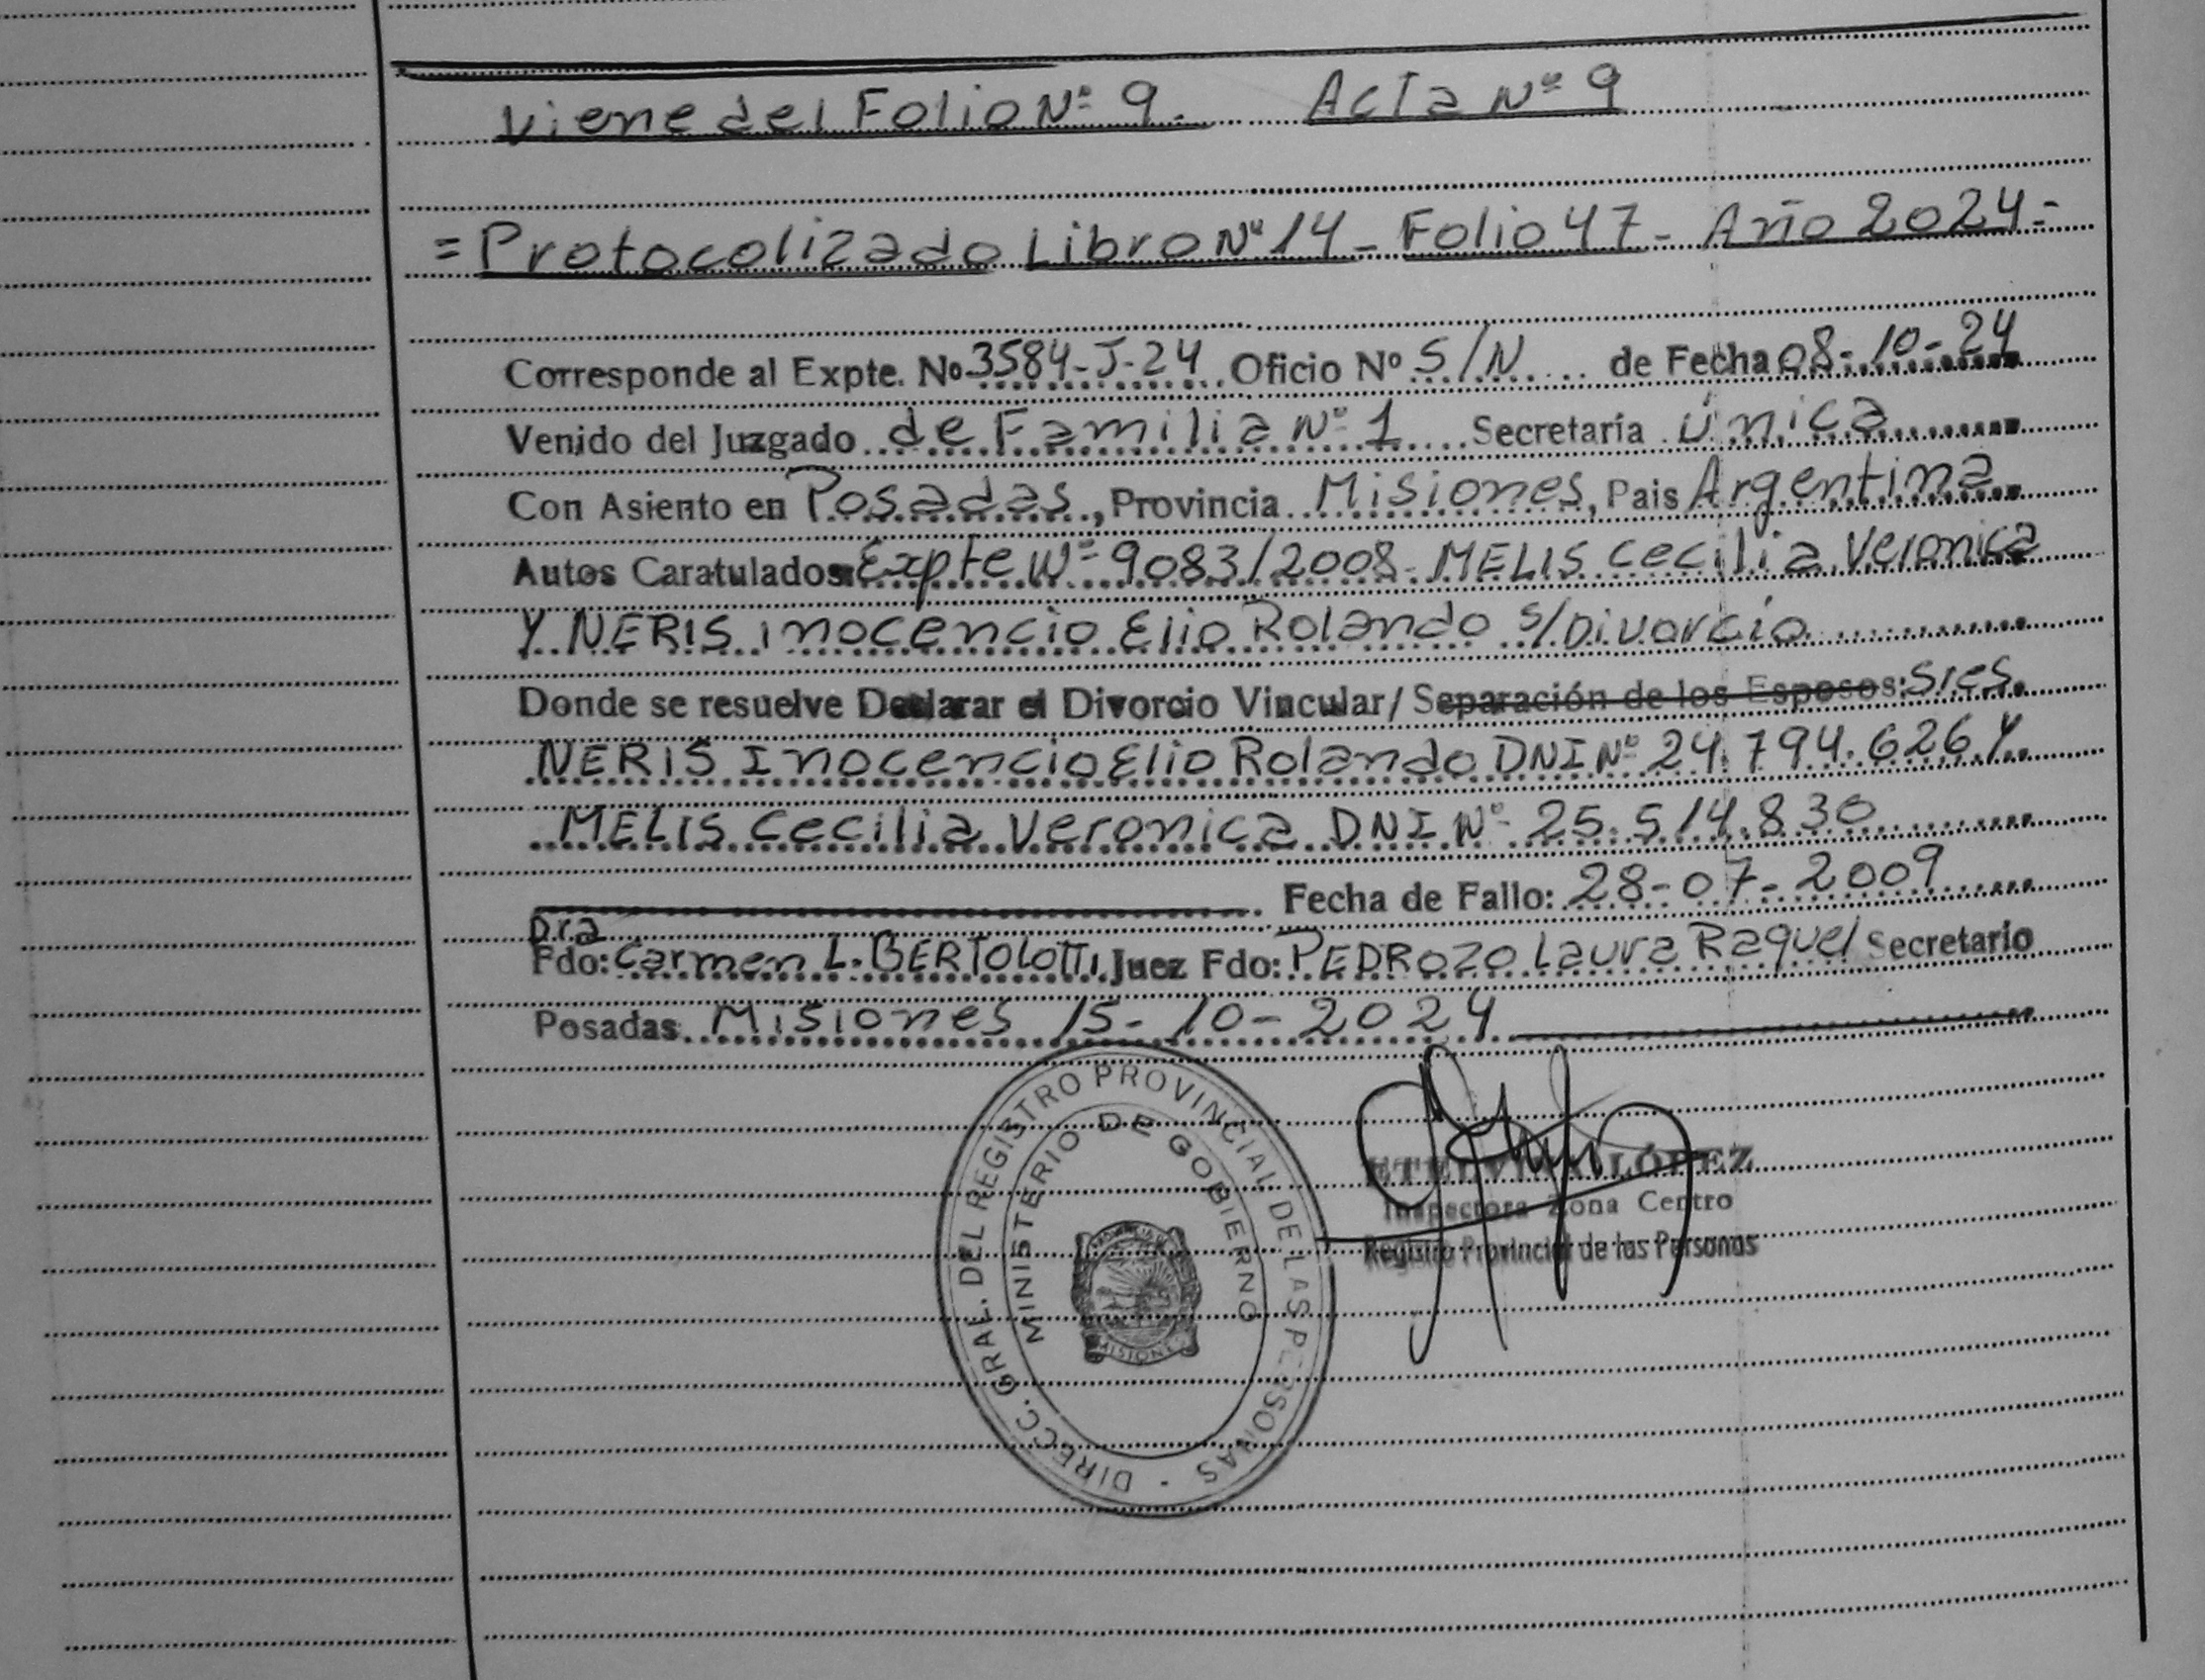 Viene del Folio Nº 9. Acta Nº 9
= Protocolizado Libro Nº 14 - Folio 47 - Año 2024 =
Corresponde al Expte. Nº 3584-J-24 Oficio Nº S/N de Fecha 08-10-24
Venido del Juzgado de Familia Nº 1 Secretaría Única
Con Asiento en Posadas, Provincia Misiones, Pais Argentina
Autos Caratulados: Expte Nº 9083/2008. MELIS Cecilia Veronica
Y NERIS Inocencio Elio Rolando S/Divorcio
Donde se resuelve Declarar el Divorcio Vincular / Separación de los Esposos: Sres.
NERIS Inocencio Elio Rolando DNI Nº 24.794.626 Y
MELIS Cecilia Veronica DNI Nº 25.514.830
Fecha de Fallo: 28-07-2009
Dra
Fdo: Carmen L. BERTOLOTTI, Juez Fdo: PEDROZO Laura Raquel Secretario
Posadas Misiones 15-10-2024
DIRECC. GRAL. DEL REGISTRO PROVINCIAL DE LAS PERSONAS -
MINISTERIO DE GOBIERNO
MISIONES
LÓPEZ
Inspectora Zona Centro
Registro Provincial de las Personas